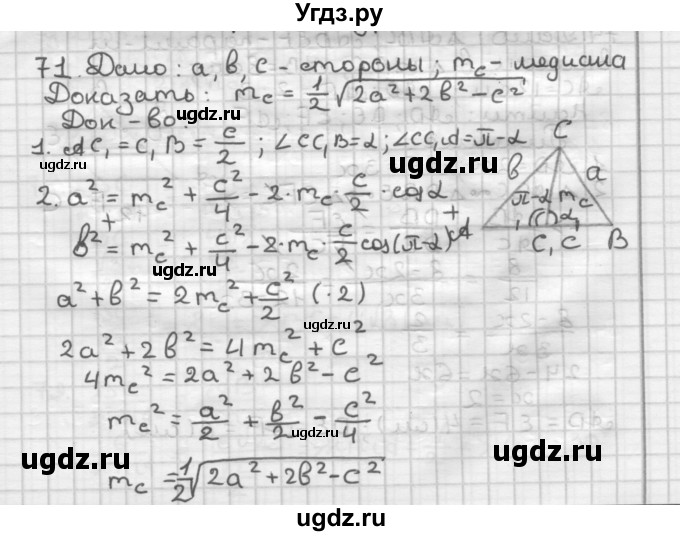 Угдз.ру
71. Дано: a, b, c - стороны; m_c - медиана
Доказать: m_c = 1/2 √(2a² + 2b² - c²)
Док-во:
1. AC₁ = C₁B = c/2; ∠CC₁B = α; ∠CC₁A = π - α
2. a² = m_c² + c²/4 - 2·m_c·c/2·cos α
+ +
b² = m_c² + c²/4 - 2·m_c·c/2 cos(π - α)
a² + b² = 2m_c² + c²/2 (·2)
2a² + 2b² = 4m_c² + c²
4m_c² = 2a² + 2b² - c²
m_c² = a²/2 + b²/2 - c²/4
m_c = 1/2 √(2a² + 2b² - c²)
C
b a
π-α m_c
α
A C₁ c B
ugdz.ru
ugdz.ru
ugdz.ru
ugdz.ru
ugdz.ru
ugdz.ru
ugdz.ru
ugdz.ru
ugdz.ru
ugdz.ru
ugdz.ru